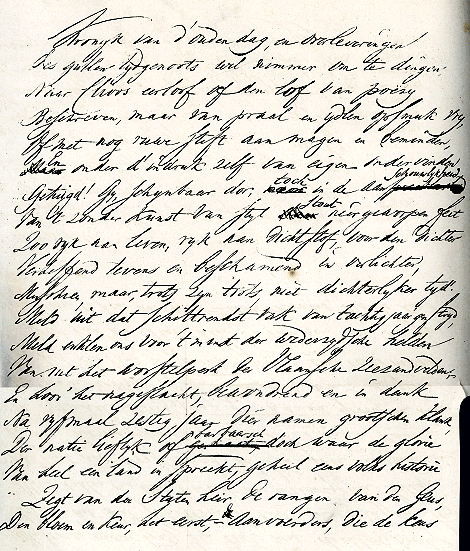 Kronyk van d'ouden dag, en overleveringen!
Des gullen tydgenoots wel nimmer om te dingen
Naar Clioos eerloof of den lof van poëzy
Beschreven, maar van praal en ydlen opsmuk vry,
Of met nog ruwe stift aan magen en beminden,
onder d'indruk zelf van eigen ondervinden
Getuigd! Op schynbaar dor, toch in de aanschouwlykheid,
Van 't zonder kunst van styl neergeworpen feit
Zoo ryk aan leven, ryk aan dichtstof, voor den dichter
Verheffend tevens en beschamend in verlichter,
Misschien, maar, trots zyn trots, niet dichterlyker tyd!
Meld uit dat schittrendst vak van tachtig jaren stryd,
Meld enklen ons voor 't minst der wederzydsche helden
Van uit het worstelperk der Vlaamsche Zeeuwsche
En door 't het nageslacht, bewondrend en in dank
Na vyfmaal zestig jaar dier namen grootschen klank
Der natie lieflyk of barbaarsch doch waar de glorie
Van heel een land in spreekt, geheel eens volks historie
Zegt van den Staten heir de rangen van den Geus,
Den bloem en keur, het eerst, – de Aanvoerders, die de keus